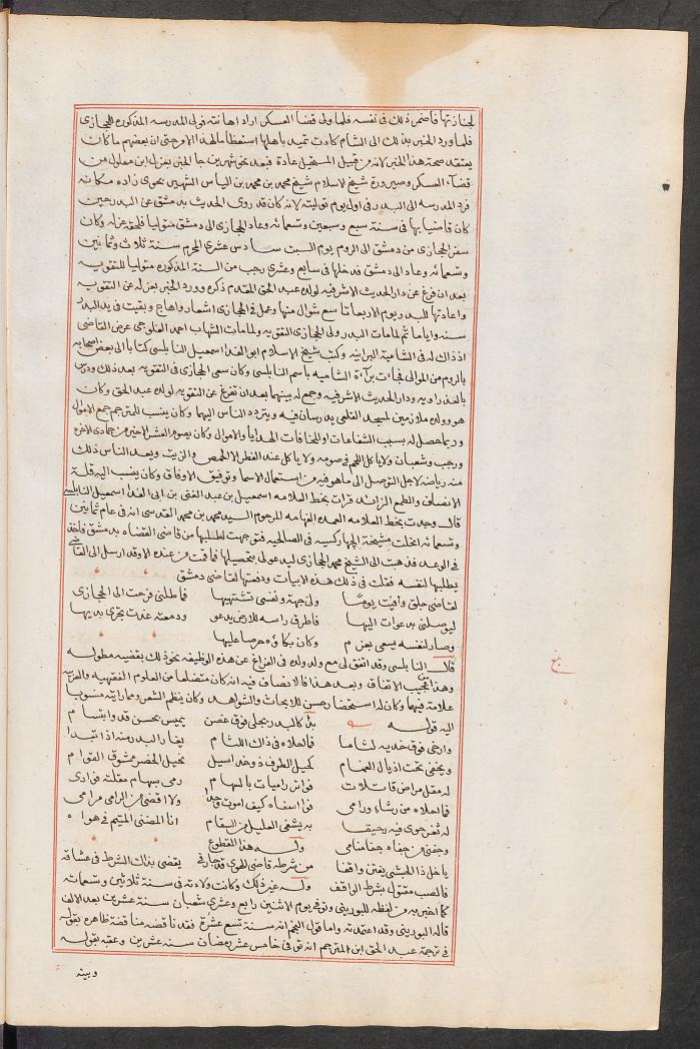 لجنازتها فاضمر ذلك في نفسه فلما ولى قضا العسكر اراد اهانته فولى المدرسه المذكوره للحجازى
فلما ورد الخبر بذلك الى الشام كادت تميد باهلها استعظاما لهذا الامر حتى ان بعضهم ما كان
يعتقد صحة هذا الخبر لانه من قبيل المستحيل عادة فبعد نحو شهرين جا الخبر بعزل ابن معلول من
قضآء العسكر وصيرورة شيخ الاسلام شيخ محمد بن محمد بن الياس الشهير بجوى زاده مكانه
فرد المدرسه الى البدر فى اول يوم توليته لانه كان قد روى الحديث بدمشق عن البدر حين
كان قاضيا بها فى سنة سبع وسبعين وتسعمائه وعاد الحجازى الى دمشق متوليا فلحقه عزله وكان
سفر الحجازى من دمشق الى الروم يوم السبت سادس عشرى المحرم سنة ثلاث وثمانين
وتسعمائه وعاد الى دمشق فدخلها فى سابع وعشرى رجب من السنة المذكوره متوليا للتقويه
بعد ان فرغ عن دار الحديث الاشرفيه لولده عبد الحق المقدم ذكره وورد الخبر بعزله عن التقويه
واعادتها للبدر يوم الاربعا تاسع شوال منها وعمل فى الحجازى اشعار واهاج وبقيت فى يد البدر
سنه واياما ثم لما مات البدر ولى الحجازى التقويه ولما مات الشهاب احمد الفلوجى عرض القاضى
اذ ذاك له فى الشاميه البرانيه وكتب شيخ الاسلام ابو الفدا اسمعيل النابلسى كتابا الى بعض اصحابه
بالروم من الموالى فجاءت برآءة الشاميه باسم النابلسى وكان سعى الحجازى فى التقويه بعد ذلك ودرس
بالعذراويه ودار الحديث الاشرفيه وجمع له بينهما بعد ان تفرغ عن التقويه لولده عبد الحق وكان
هو وولده ملازمين لمسجد القلعى يدرسان فيه ويتردد الناس اليهما وكان ينسب للمترجم جمع الاموال
وربما حصل له بسبب الشفاعات او المخافات الهدايا والاموال وكان يصوم العشر الاخير من جمادى الاخره
ورجب وشعبان ولا ياكل اللحم فى صومه ولا ياكل عند الفطر الا الحمص والزيت ويعد الناس ذلك
منه رياضه لاجل التوصل الى ما هو فيه من استعمال الاسما وتوفيق الاوفاق وكان ينسب اليه قلة
الانصاف والطمع الزائد قرات بخط العلامه اسمعيل بن عبد الغنى بن ابى الفدا اسمعيل النابلسى
قال وجدت بخط العلامه العمده الفهامه المرحوم السيد محمد بن محمد القدسى انه فى عام ثمانين
وتسعمائه انحلت مشيخة الجهاركسيه فى الصالحيه فتوجهت لطلبها من قاضى القضاه بدمشق فاخذ
فى الوعد فذهبت الى الشيخ محمد الحجازى ليدعو لى بتحصيلها فما قمت من عنده الا وقد ارسل الى القاضى
يطلبها لنفسه فقلت فى ذلك هذه الابيات ودفعتها لقاضى دمشق
لقاضى جلق وافيت يوما ولى جهة ونفسى تشتهيها فماطلنى فرحت الى الحجازى
ليوصلنى بدعوات اليها فاطرق راسه للارض يدعو ودمعته غدت تجرى بديها
وصار لنفسه يسعى بعزم وكان بكاؤه حرصا عليها
قال النابلسى وقد اتفق لى مع ولد ولده فى الفراغ عن هذه الوظيفه نحو ذلك بقضيه مطوله
وهذا من عجيب الاتفاق وبعد هذا فالانصاف فيه انه كان متضلعا من العلوم الفقهيه والعربيه
علامة فيها وكان له استحضار حسن للابحاث والشواهد وكان ينظم الشعر ومما رايته منسوبا
اليه قوله بدا كالبدر يجلى فوق غصن يميس بحسن قد وابتسام
وارخى فوق خديه لثاما فالعلاه فى ذاك اللثام يغار البدر منه اذا تبدا
ويخفى تحت اذيال الغمام كحيل الطرف ذو خد اسيل نحيل الخصر ممشوق القوام
له مقل مراض قاتلات فواتر راميات بالسهام رمى بسهام مقلته فؤادى
فالعلاه من رشاء ورامى فوا اسفاه كيف اموت وجدا ولا اقضى من الرامى مرامى
له ثغر حوى فيه رحيقا به يشفى العليل من السقام انا المضنى المتيم فى هواه
وجفنى من جفاه جفا منامى وله هذا المقطوع
يا خل ذا الحبشى يفتن واقفا من شرطه قاضى الهوى قد حار فى يقضى بذاك الشرط فى عشاقه
فالصب مقتول بشرط الواقف وله غير ذلك وكانت ولادته فى سنة ثلاثين وتسعمائة
كما اخبر به من لفظه للبورينى وتوفى يوم الاثنين رابع وعشرى شعبان سنة عشرين بعد الالف
قاله البورينى وقد اعتمدته واما قول النجم انه سنة تسع عشرة فقد ناقضه مناقضة ظاهره بقوله
فى ترجمة عبد الحق ابن المترجم انه توفى فى خامس عشر رمضان سنه عشرين وعقبه بقوله
وبينه